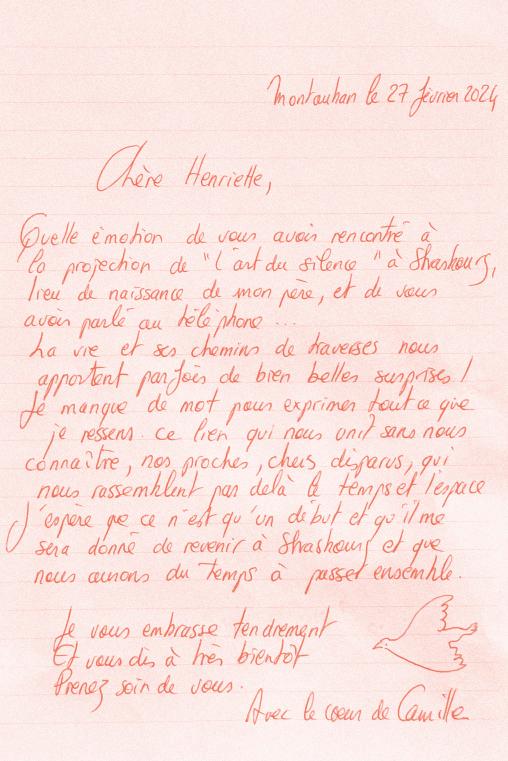 Montauban le 27 février 2024
Chère Henriette,
Quelle émotion de vous avoir rencontré à
la projection de "l'art du silence" à Strasbourg,
lieu de naissance de mon père, et de vous
avoir parlé au téléphone ...
La vie et ses chemins de traverses nous
apportent parfois de bien belles surprises !
Je manque de mot pour exprimer tout ce que
je ressens. ce lien qui nous unit sans nous
connaître, nos proches, chers disparus, qui
nous rassemblent par delà le temps et l'espace
J'espère que ce n'est qu'un début et qu'il me
sera donné de revenir à Strasbourg et que
nous aurons du temps à passer ensemble.
Je vous embrasse tendrement
Et vous dis à très bientôt
Prenez soin de vous.
Avec le coeur de Camille